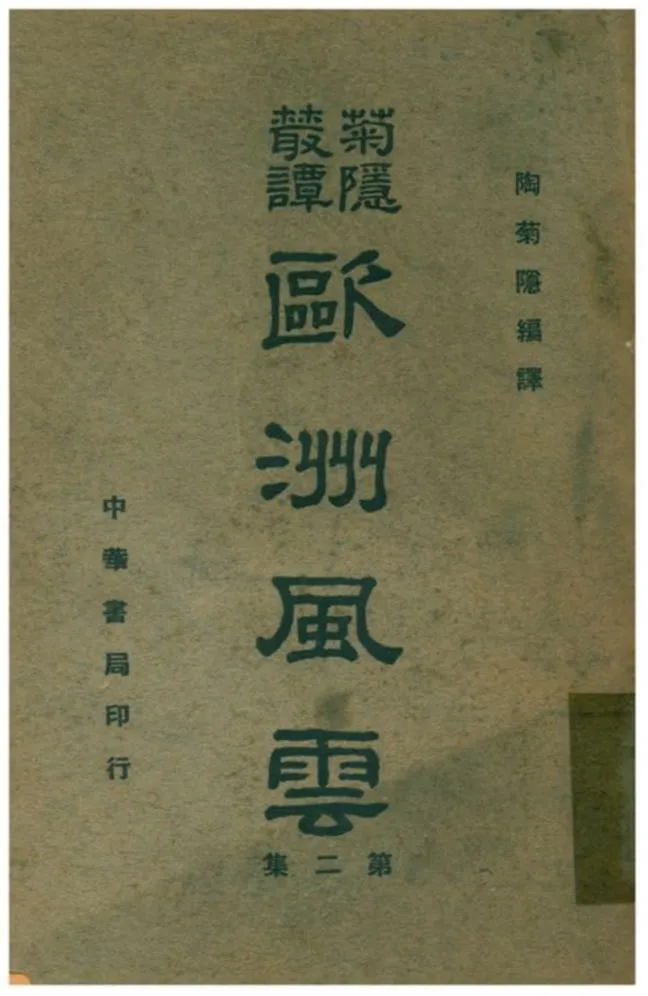 陶菊隱編譯
菊隱
叢譚
歐洲風雲
第二集
中華書局印行